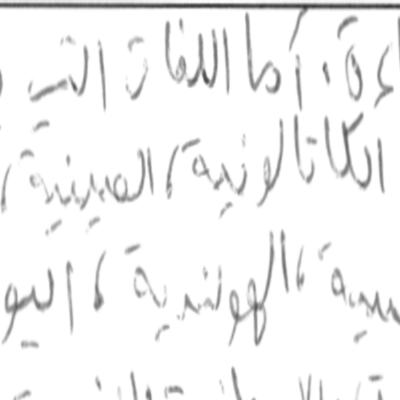 اءة. أما اللغات التي
الكاتالونية، الصينية،
سية، الهولندية، اليو